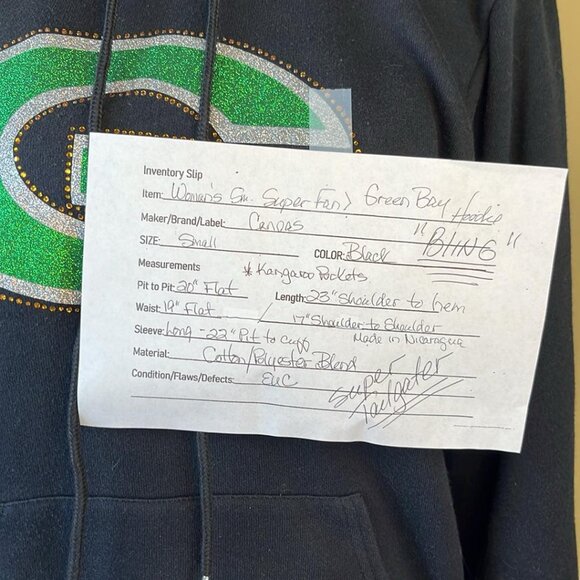 Inventory Slip
Item: Woman's Sm. Super Fan > Green Bay Hoodie
Maker/Brand/Label: Canvas "BLING"
SIZE: Small COLOR: Black
Measurements * Kangaroo Pockets
Pit to Pit: 20" Flat Length: 23" Shoulder to hem
Waist: 19" Flat / 17" Shoulder to Shoulder
Sleeve: Long - 22" Pit to Cuff Made in Nicaragua
Material: Cotton/Polyester Blend
Condition/Flaws/Defects: EUC Super
Tailgater